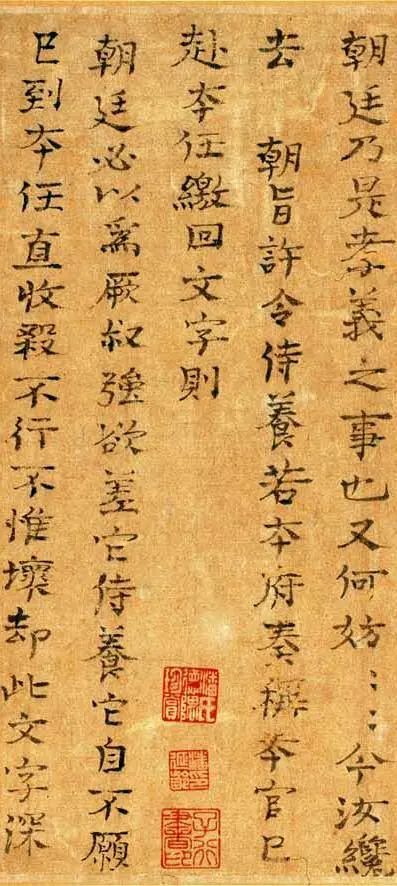 朝廷乃是孝義之事也又何妨〻〻今汝纔
去 朝旨許令侍養若本府奏稱本官已
赴本任繳回文字則
朝廷必以爲厥叔強欲差它侍養它自不願
已到本任直收殺不行不惟壞却此文字深